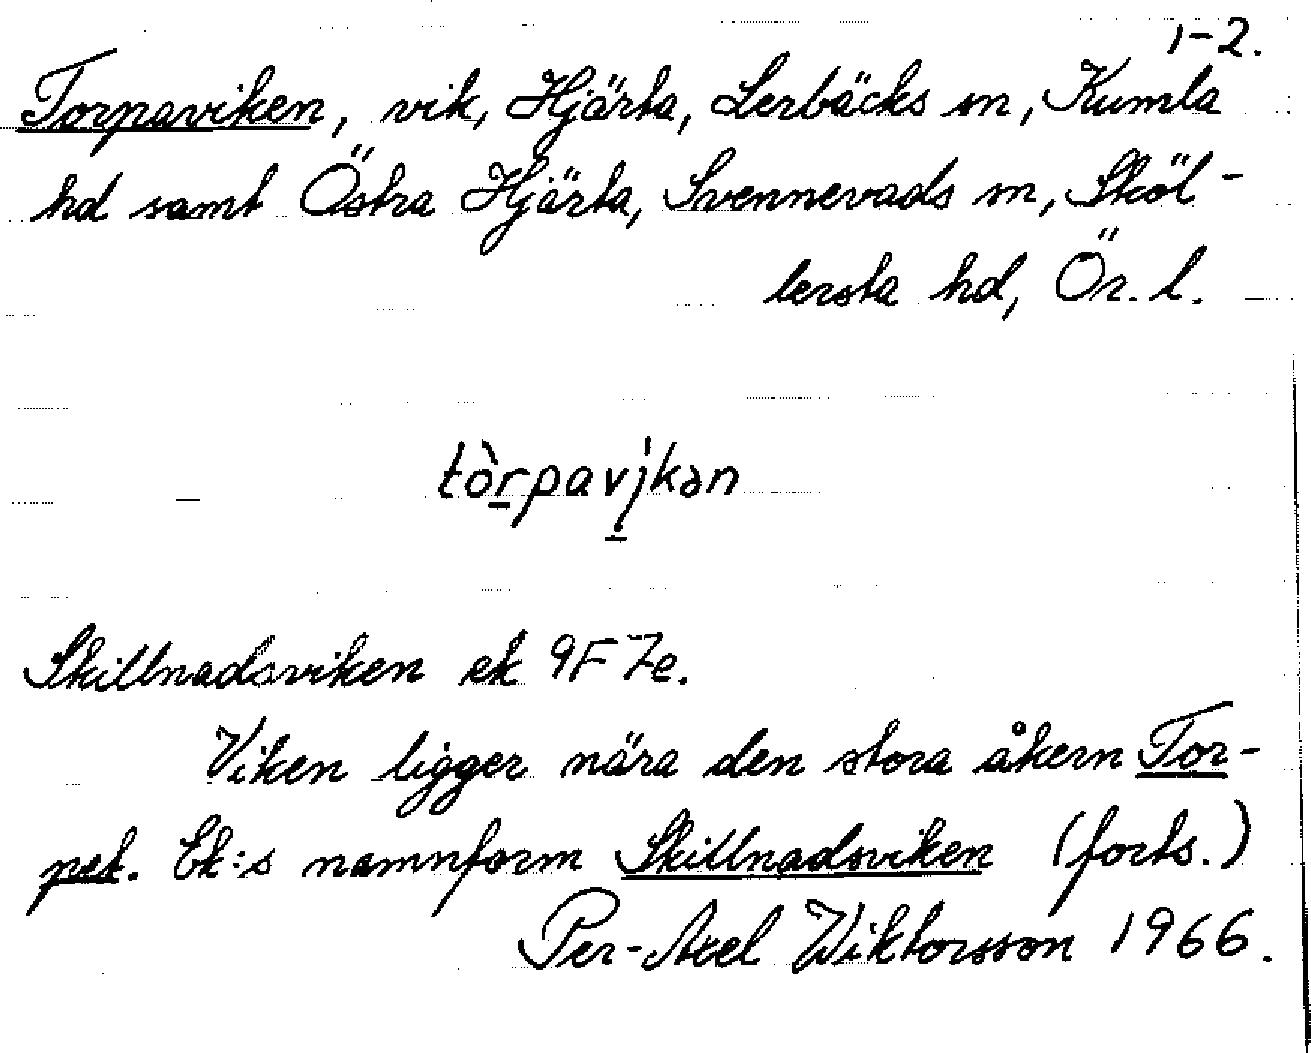 1-2.
Torpaviken, vik, Hjärta, Lerbäcks sn, Kumla
hd samt Östra Hjärta, Svennevads sn, Sköl-
lersta hd, Ör. l.
tòrpavi̇̀kən
Skillnadsviken ek 9F 7e.
Viken ligger nära den stora åkern Tor-
pet. Ek:s namnform Skillnadsviken (forts.)
Per-Axel Wiktorsson 1966.